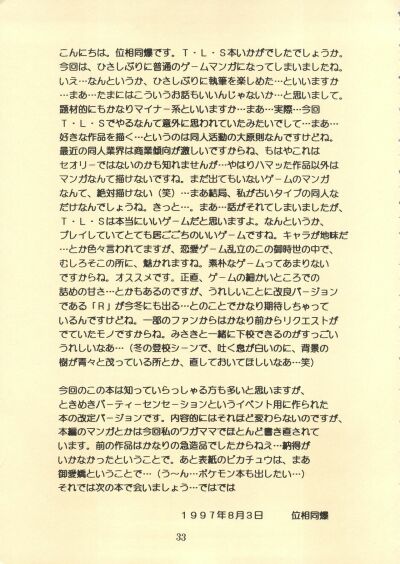 こんにちは。位相同爆です。T・L・S本いかがでしたでしょうか。
今回は、ひさしぶりに普通のゲームマンガになってしまいましたね。
いえ…なんというか、ひさしぶりに執筆を楽しめた…といいますか
…まあ…たまにはこういうお話もいいんじゃないか…と思いまして。
題材的にもかなりマイナー系といいますか…まあ…実際…今回
T・L・Sでやるなんて意外に思われていたみたいでして…まあ…
好きな作品を描く…というのは同人活動の大原則なんですけどね。
最近の同人業界は商業傾向が激しいですからね、もはやこれは
セオリーではないのかも知れませんが…やはりハマッた作品以外は
マンガなんて描けないですね。まだ出てもいないゲームのマンガ
なんて、絶対描けない（笑）…まあ結局、私が古いタイプの同人な
だけなんでしょうね。きっと…。まあ…話がそれてしまいましたが、
T・L・Sは本当にいいゲームだと思いますよ。なんというか、
プレイしていてとても居ごこちのいいゲームですね。キャラが地味だ
…とか色々言われてますが、恋愛ゲーム乱立のこの御時世の中で、
むしろそこの所に、魅かれますね。素朴なゲームってあまりない
ですからね。オススメです。正直、ゲームの細かいところでの
詰めの甘さ…とかもあるのですが、うれしいことに改良バージョン
である「R」が今冬にも出る…とのことでかなり期待しちゃって
いるんですけどね。一部のファンからはかなり前からリクエストが
でていたモノですからね。みさきと一緒に下校できるのがすっごい
うれしいなあ…（冬の登校シーンで、吐く息が白いのに、背景の
樹が青々と茂っている所とか、直しておいてほしいなあ…笑）

今回のこの本は知っていらっしゃる方も多いと思いますが、
ときめきパーティーセンセーションというイベント用に作られた
本の改定バージョンです。内容的にはそれほど変わらないのですが、
本編のマンガとかは今回私のワガママでほとんど書き直されて
います。前の作品はかなりの急造品でしたからねえ…納得が
いかなかったということで。あと表紙のピカチュウは、まあ
御愛嬌ということで…（う～ん…ポケモン本も出したい…）
それでは次の本で会いましょう…ではでは

１９９７年８月３日　　位相同爆
33